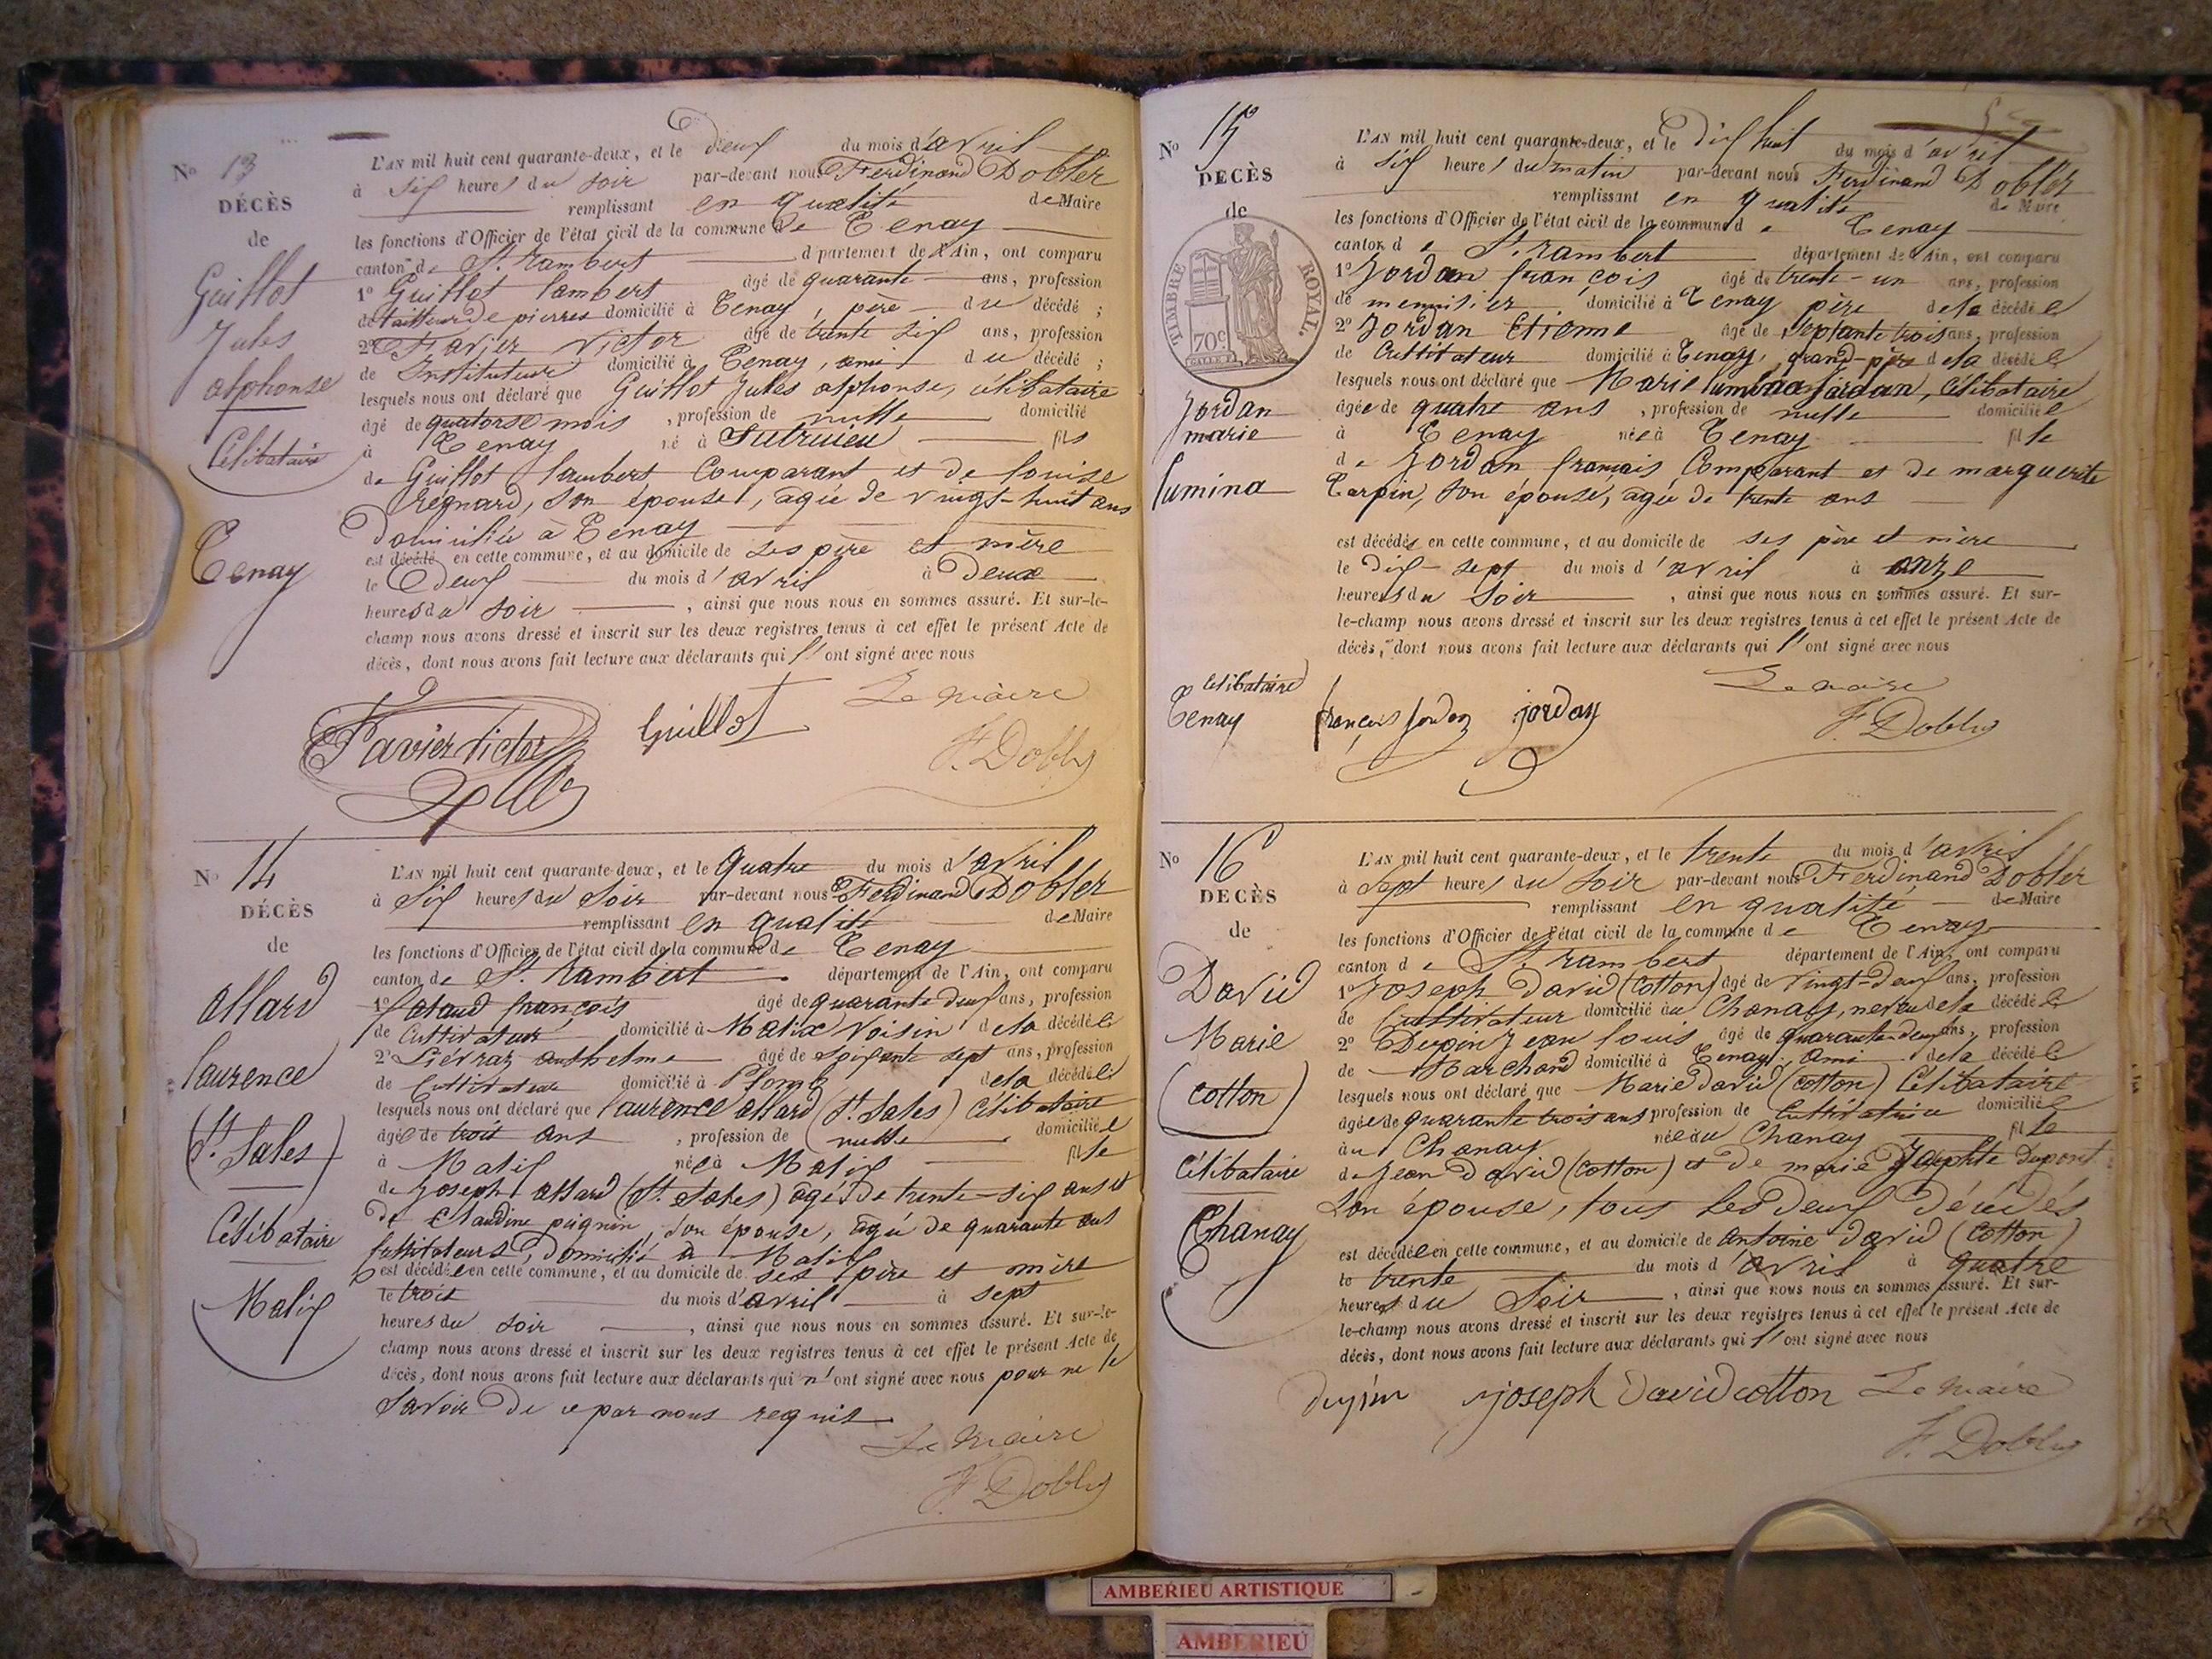 No 13
DÉCÈS
de
Guillot
Jules
alphonse
Célibataire
Tenay
L'AN mil huit cent quarante-deux, et le Deux du mois d'avril
à Six heures du soir par-devant nous Ferdinand Dobler
remplissant en qualité de Maire
les fonctions d'Officier de l'état civil de la commune de Tenay
canton de St. Rambert département de l'Ain, ont comparu
1º Guillot lambert âgé de quarante ans, profession
de tailleur de pierres domicilié à Tenay, père du décédé ;
2º Favier Victor âgé de trente six ans, profession
de Instituteur domicilié à Tenay, ami du décédé ;
lesquels nous ont déclaré que Guillot Jules alphonse, célibataire
âgé de quatorse mois, profession de nulle domicilié
à Tenay né à fils
de Guillot lambert Comparant et de louise
regnard, son épouse, agée de vingt-huit ans
Domiciliée à Tenay
est décédé en cette commune, et au domicile de ses père et mère
le Deux du mois d'avril à Deux
heures du soir, ainsi que nous nous en sommes assuré. Et sur-le-
champ nous avons dressé et inscrit sur les deux registres tenus à cet effet le présent Acte de
décès, dont nous avons fait lecture aux déclarants qui l'ont signé avec nous
Favier Victor Guillot Le Maire
F. Dobler
No 14
DÉCÈS
de
allard
laurence
(St. Sales)
Célibataire
Malix
L'AN mil huit cent quarante-deux, et le Quatre du mois d'avril
à Six heures du Soir par-devant nous Ferdinand Dobler
remplissant en qualité de Maire
les fonctions d'Officier de l'état civil de la commune de Tenay
canton de St. Rambert département de l'Ain, ont comparu
1º françois âgé de quarante deux ans, profession
de Cultivateur domicilié à Malix Voisin de la décédée
2º anthelme âgé de soixante sept ans, profession
de Cultivateur domicilié à de la décédée
lesquels nous ont déclaré que laurence allard (St. Sales) Célibataire
âgée de trois ans, profession de nulle domiciliée
à Malix née à Malix fille
de Joseph allard (St. Sales) agé de trente-six ans et
de Claudine puignin, son épouse, agée de quarante ans
Cultivateurs, domicilié à Malix
est décédée en cette commune, et au domicile de ses père et mère
le trois du mois d'avril à sept
heures du soir, ainsi que nous nous en sommes assuré. Et sur-le-
champ nous avons dressé et inscrit sur les deux registres tenus à cet effet le présent Acte de
décès, dont nous avons fait lecture aux déclarants qui n'ont signé avec nous pour ne le
savoir de ce par nous requis
Le Maire
F. Dobler
No 15
DÉCÈS
de
TIMBRE ROYAL.
70c
Jordan
marie
lumina
Célibataire
Tenay
L'AN mil huit cent quarante-deux, et le Dix huit du mois d'avril
à Six heures du matin par-devant nous Ferdinand Dobler
remplissant en qualité de Maire
les fonctions d'Officier de l'état civil de la commune de Tenay
canton de St. rambert département de l'Ain, ont comparu
1º Jordan françois âgé de trente-un ans, profession
de menuisier domicilié à Tenay père de la décédée
2º Jordan Etienne âgé de Septante trois ans, profession
de Cultivateur domicilié à Tenay, grand-père de la décédée
lesquels nous ont déclaré que Marie lumina Jordan, célibataire
âgée de quatre ans, profession de nulle domiciliée
à Tenay née à Tenay fille
de Jordan français Comparant et de marguerite
Carpin, son épouse, agée de trente ans
est décédée en cette commune, et au domicile de ses père et mère
le dix-sept du mois d'avril à onze
heures du Soir, ainsi que nous nous en sommes assuré. Et sur-
le-champ nous avons dressé et inscrit sur les deux registres tenus à cet effet le présent Acte de
décès, dont nous avons fait lecture aux déclarants qui l'ont signé avec nous
Le maire
françois Jordan jordan F. Dobler
No 16
DECÈS
de
David
Marie
(Cotton)
Célibataire
Chanay
L'AN mil huit cent quarante-deux, et le trente du mois d'avril
à Sept heures du Soir par-devant nous Ferdinand Dobler
remplissant en qualité de Maire
les fonctions d'Officier de l'état civil de la commune de Tenay
canton de St. rambert département de l'Ain, ont comparu
1º Joseph David (Cotton) âgé de vingt-deux ans, profession
de Cultivateur domicilié au Chanay, neveu de la décédée
2º Dupin Jean louis âgé de quarante-deux ans, profession
de Marchand domicilié à Tenay, ami de la décédée
lesquels nous ont déclaré que Marie David (Cotton) Célibataire
âgée de quarante trois ans profession de Cultivatrice domiciliée
au Chanay née au Chanay fille
de Jean David (Cotton) et de marie Dupont
Son épouse, tous les deux Décédés
est décédée en cette commune, et au domicile de Antoine David (Cotton)
le trente du mois d'avril à quatre
heures du Soir, ainsi que nous nous en sommes assuré. Et sur-
le-champ nous avons dressé et inscrit sur les deux registres tenus à cet effet le présent Acte de
décès, dont nous avons fait lecture aux déclarants qui l'ont signé avec nous
dupin joseph David cotton Le Maire
F. Dobler
AMBERIEU ARTISTIQUE
AMBERIEU